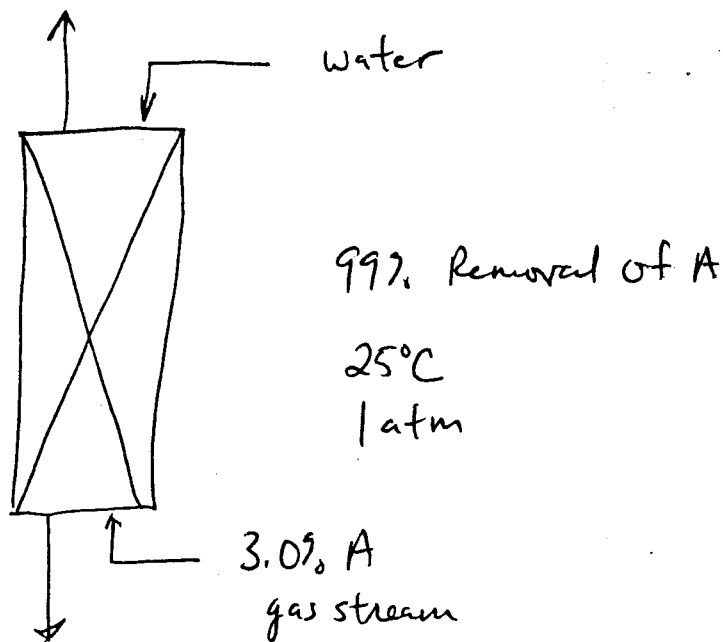 water
99% Removal of A
25°C
1 atm
3.0% A
gas stream